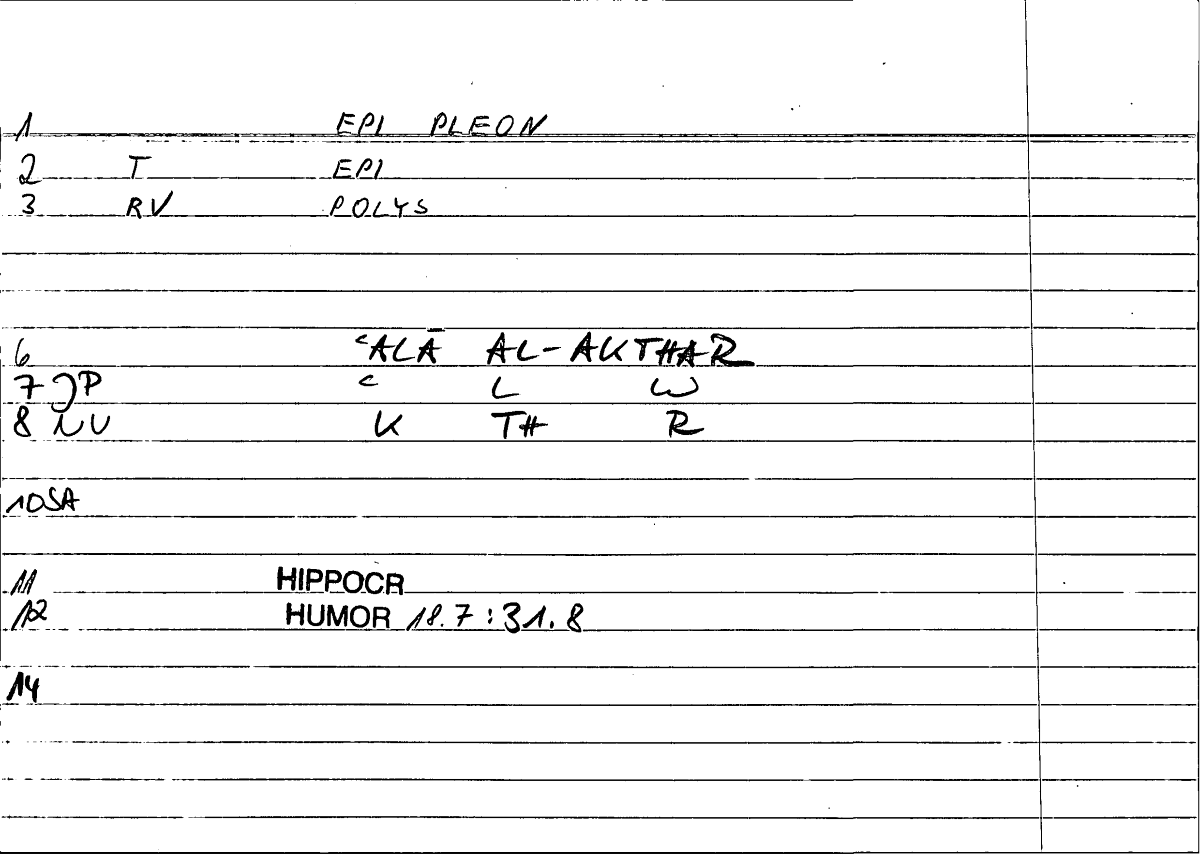 1 EPI PLEON
2 T EPI
3 RV POLYS
6 ʿALĀ AL-AKTHAR
7 JP ʿ L W
8 NV K TH R
10 SA
11 HIPPOCR
12 HUMOR 18.7 : 31.8
14